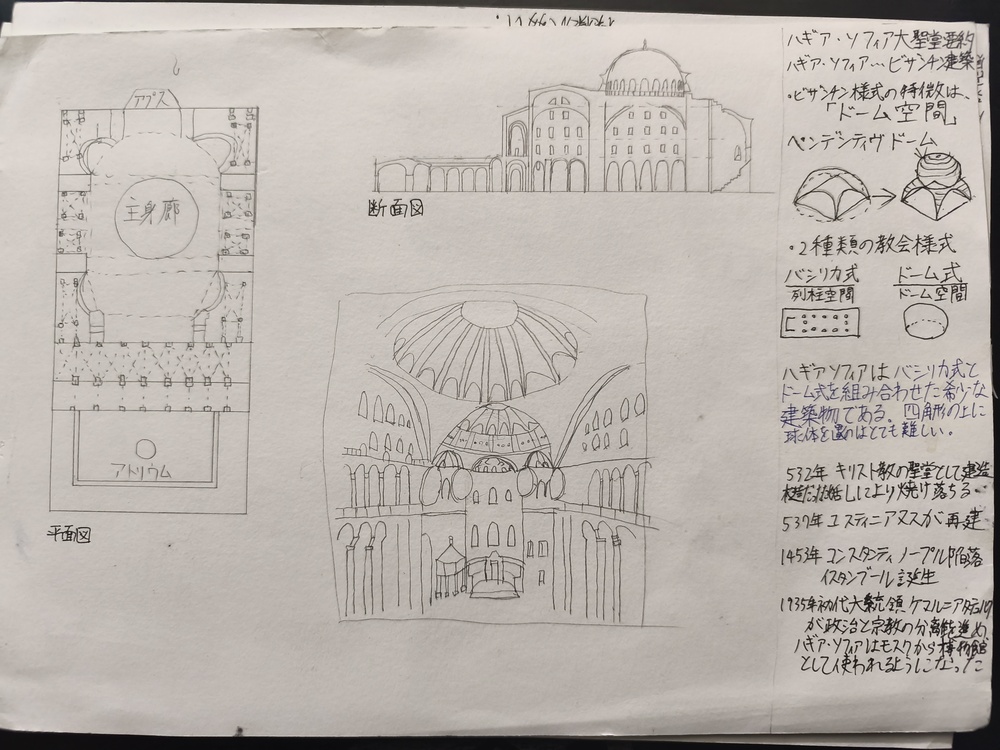 アプス
主身廊
アトリウム
平面図
断面図
ハギア・ソフィア大聖堂要約
ハギア・ソフィア…ビザンチン建築
・ビザンチン様式の特徴は、
「ドーム空間」
ペンデンティヴドーム
・2種類の教会様式
バシリカ式
列柱空間
ドーム式
ドーム空間
ハギアソフィアはバシリカ式と
ドーム式を組み合わせた希少な
建築物である。四角形の上に
球体を置のはとても難しい。
532年 キリスト教の聖堂として建造
により焼け落ちる。
537年 ユスティニアヌスが再建
1453年 コンスタンティノープル陥落
イスタンブール誕生
1935年初代大統領ケマルニアタテュルク
が政治と宗教の分離を進め、
ハギア・ソフィアはモスクから博物館
として使われるようになった